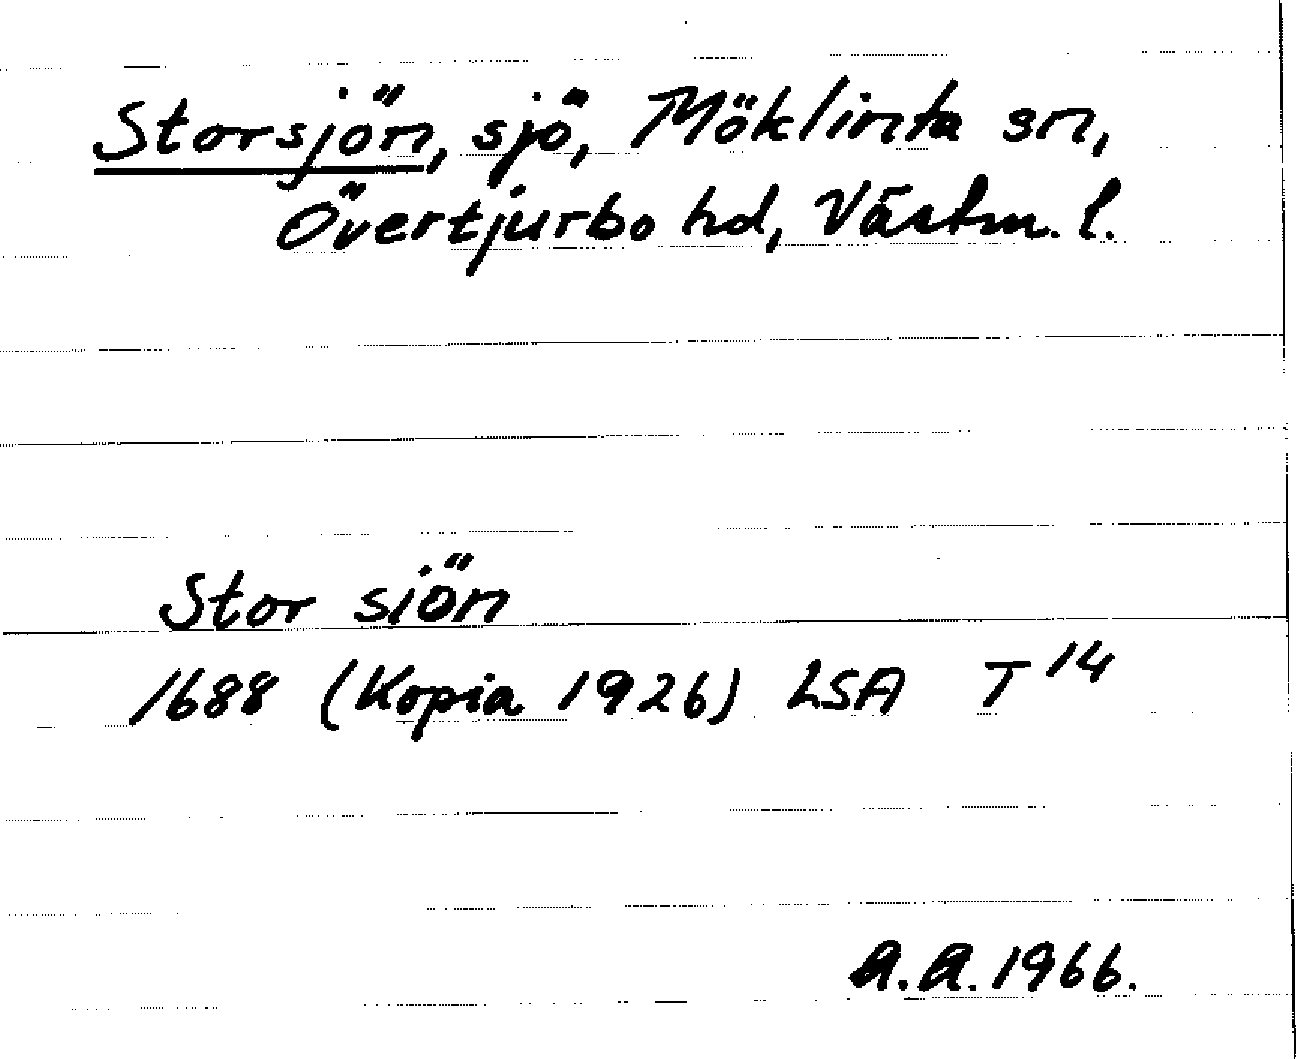 Storsjön, sjö, Möklinta sn,
Övertjurbo hd, Västm. l.
Stor siön
1688 (Kopia 1926) LSA T 14
A.A. 1966.